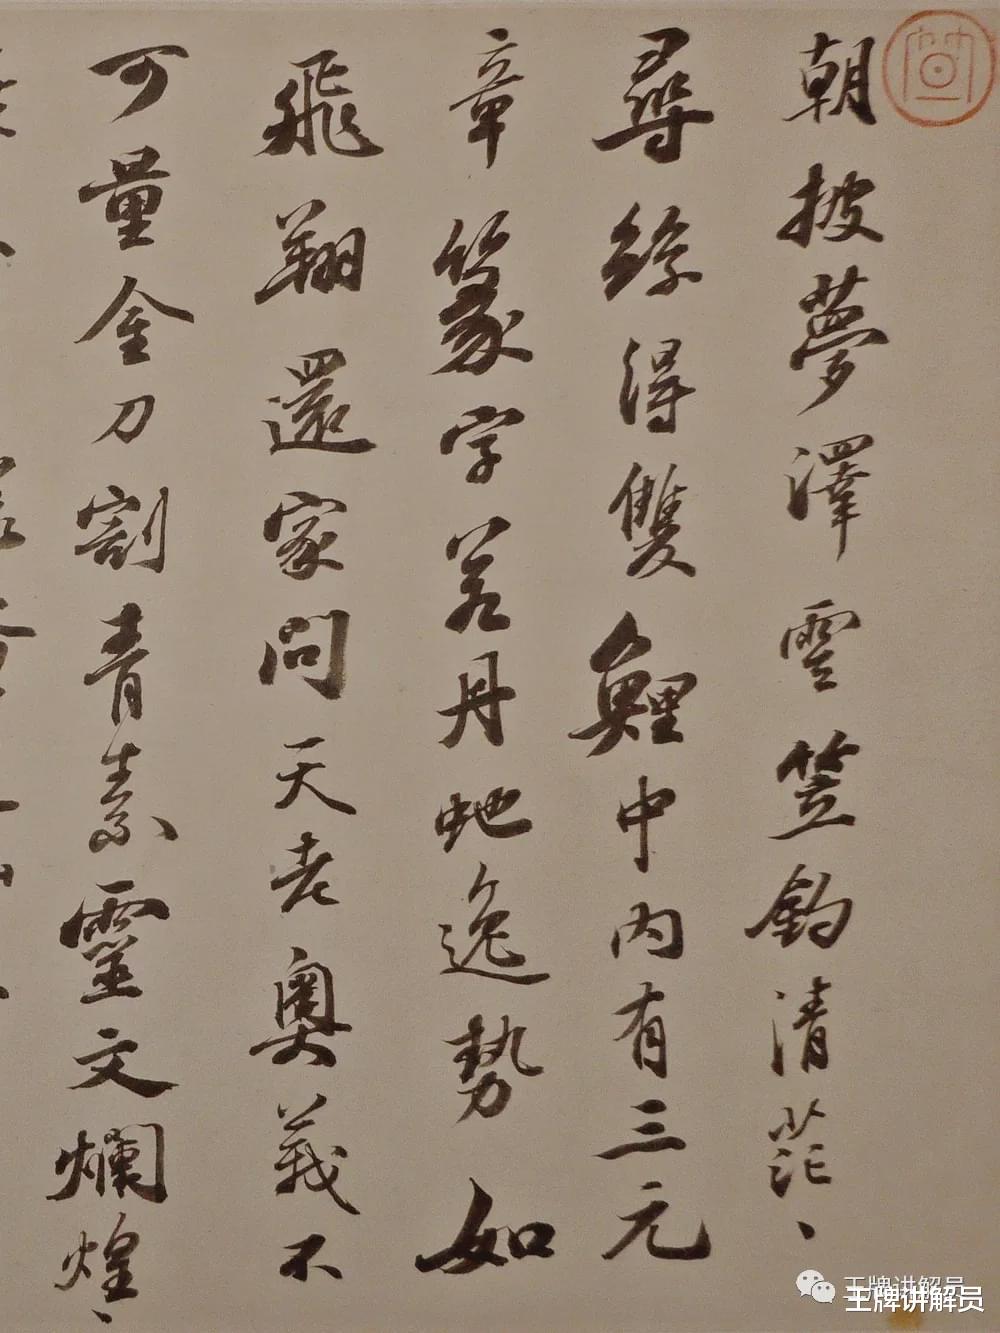 朝披夢澤雲笠釣清茫、
尋絲得雙鯉中內有三元
章篆字若丹虵逸勢如
飛翔還家問天老奧義不
可量金刀割青素靈文爛煌、
王牌讲解员
王牌讲解员